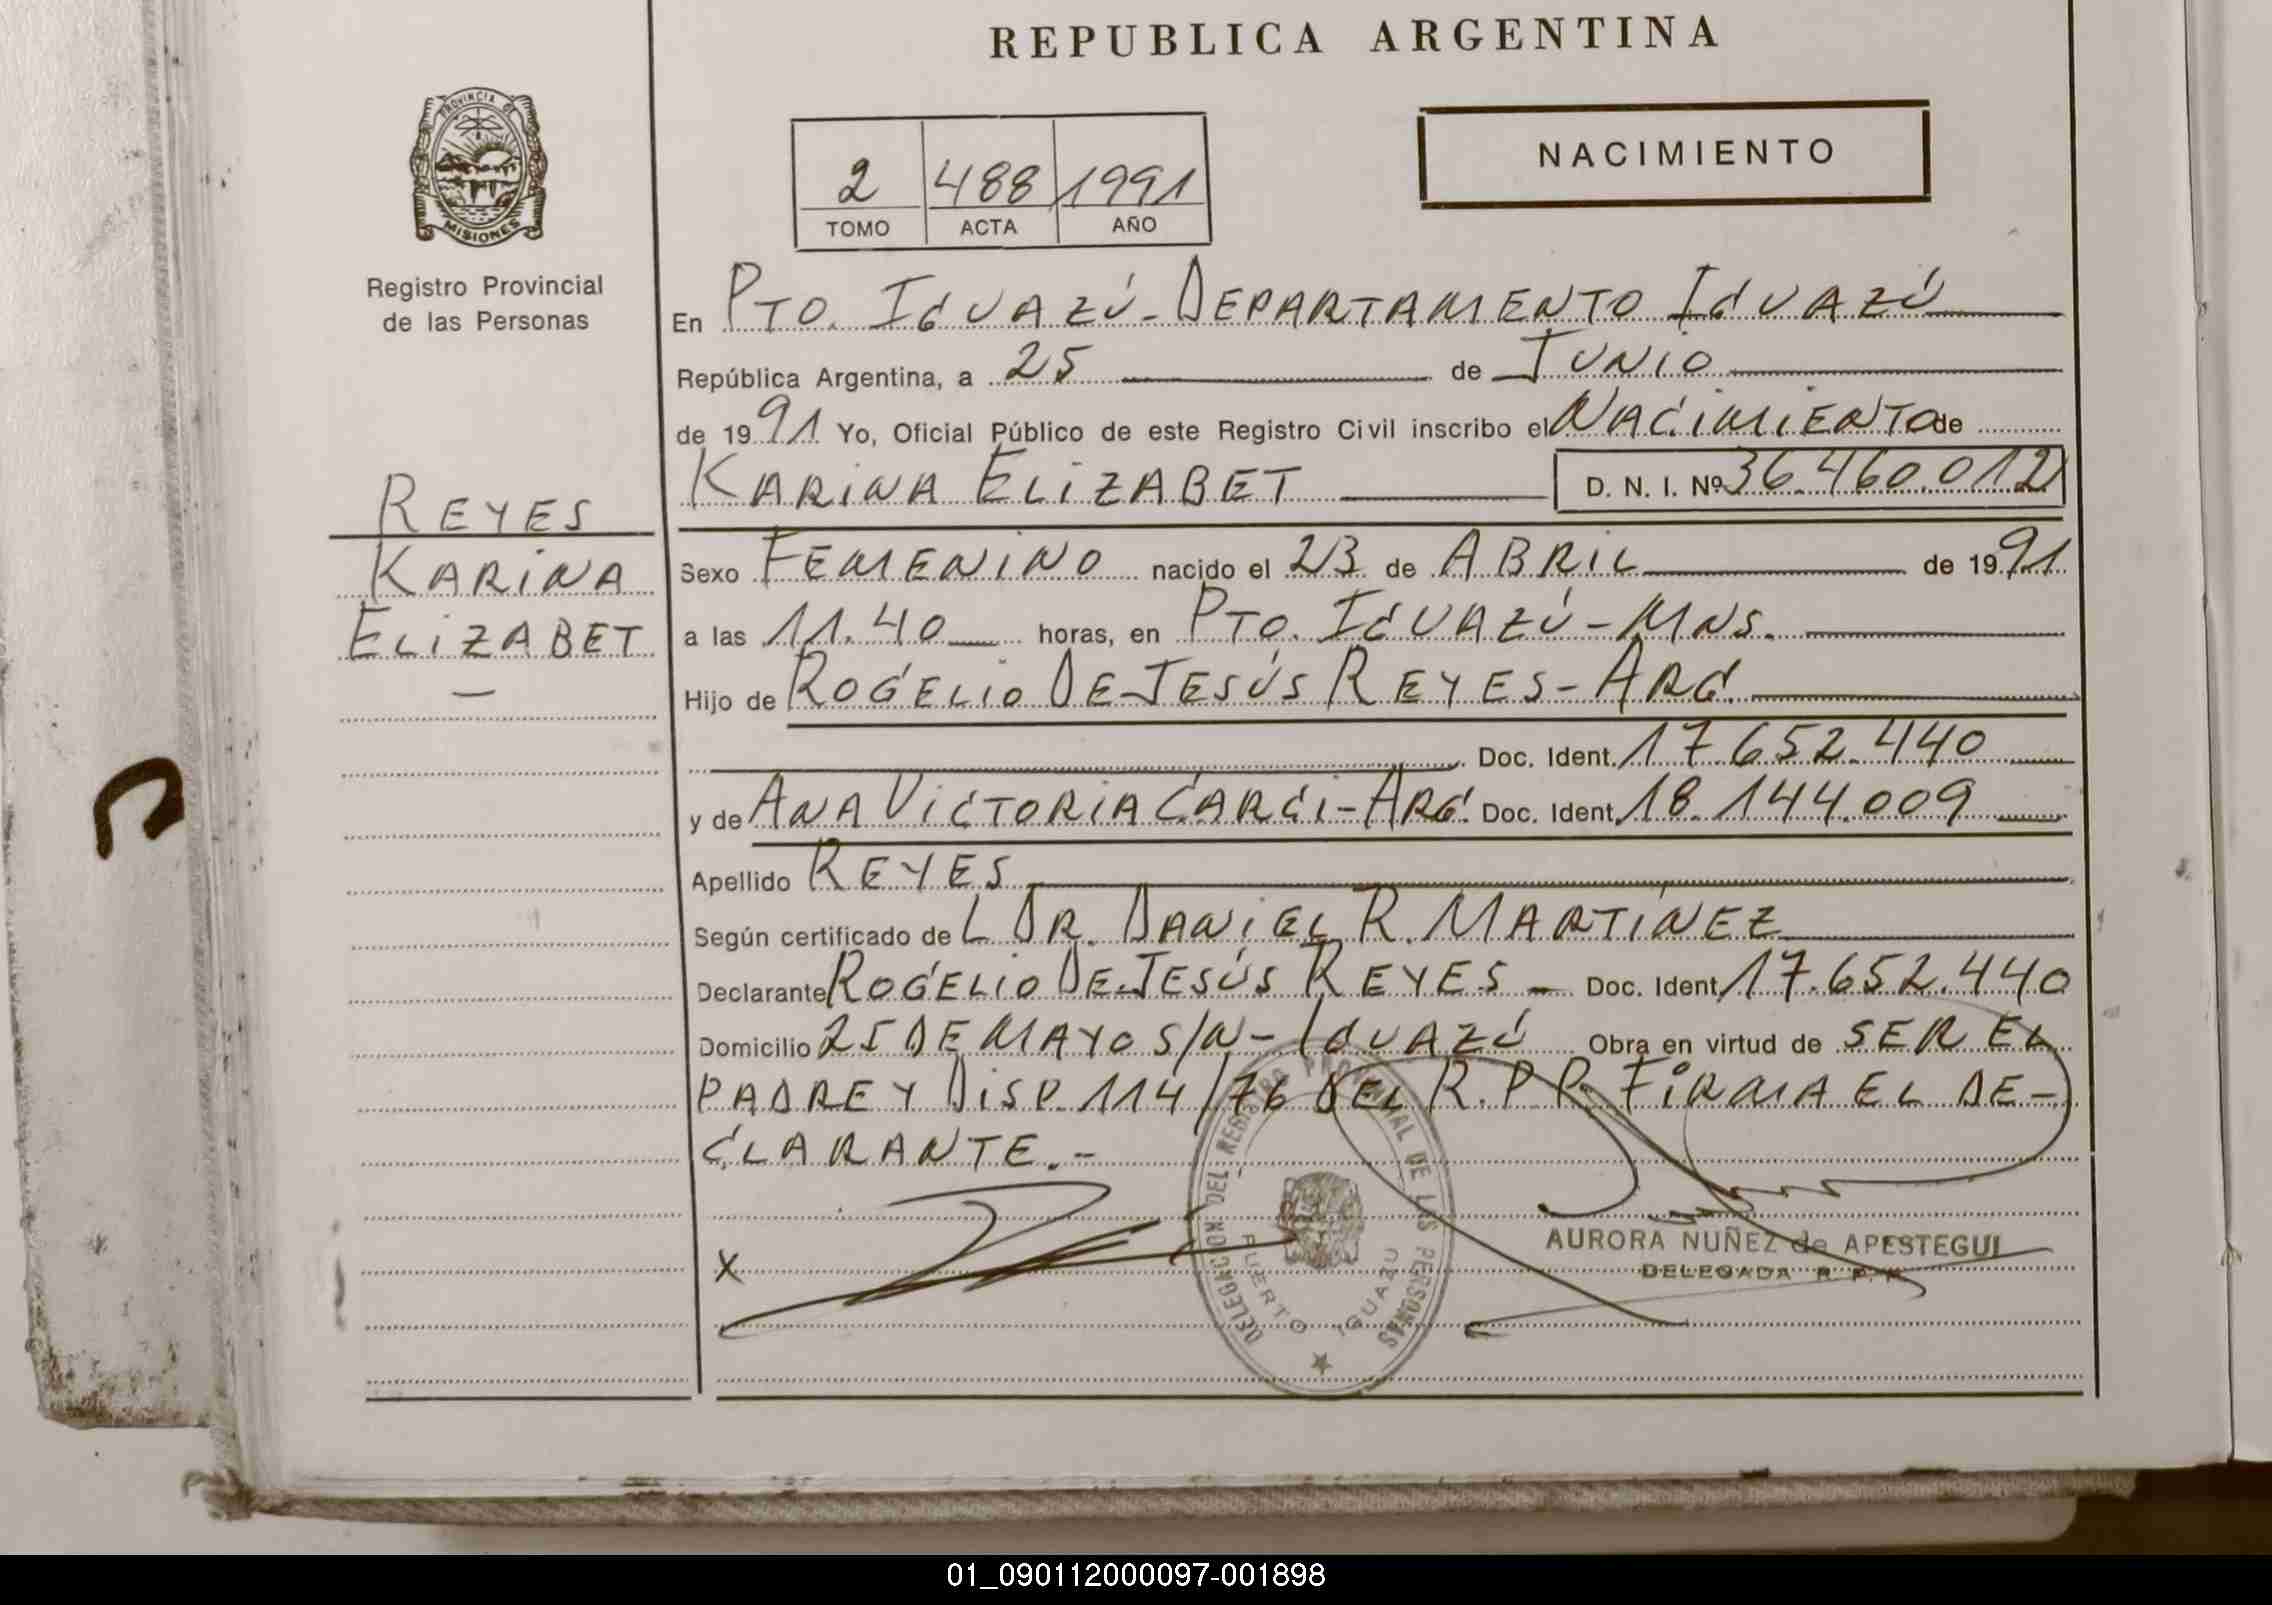 REPUBLICA ARGENTINA
PROVINCIA DE
MISIONES
Registro Provincial
de las Personas
2 488 1991
TOMO ACTA AÑO
NACIMIENTO
En PTO. IGUAZÚ - DEPARTAMENTO IGUAZÚ
República Argentina, a 25 de JUNIO
de 1991 Yo, Oficial Público de este Registro Civil inscribo el NACIMIENTO de
KARINA ELIZABET D. N. I. Nº 36.460.012
REYES
KARINA
ELIZABET
—
Sexo FEMENINO nacido el 23 de ABRIL de 1991
a las 11.40 horas, en PTO. IGUAZÚ - MNS.
Hijo de ROGELIO DE JESÚS REYES - ARG.
Doc. Ident. 17.652.440
y de ANA VICTORIA GARCI - ARG. Doc. Ident. 18.144.009
Apellido REYES
Según certificado de L DR. DANIEL R. MARTÍNEZ
Declarante ROGELIO DE JESÚS REYES - Doc. Ident. 17.652.440
Domicilio 25 DE MAYO S/N - IGUAZÚ Obra en virtud de SER EL
PADRE Y DISP. 114/76 DEL R.P.P. FIRMA EL DE-
CLARANTE.-
X
DELEGACION DEL REGISTRO PROVINCIAL DE LAS PERSONAS
PUERTO IGUAZU
AURORA NUÑEZ de APESTEGUI
DELEGADA R. P. P.
01_090112000097-001898